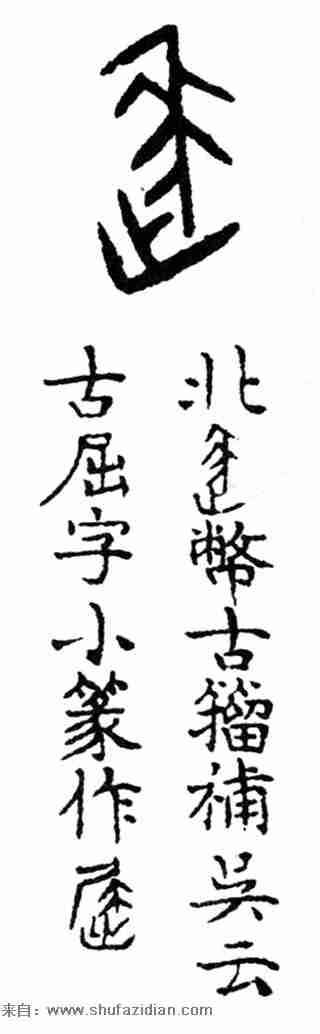 北 幣古籀補吳云
古屈字小篆作
来自：www.shufazidian.com